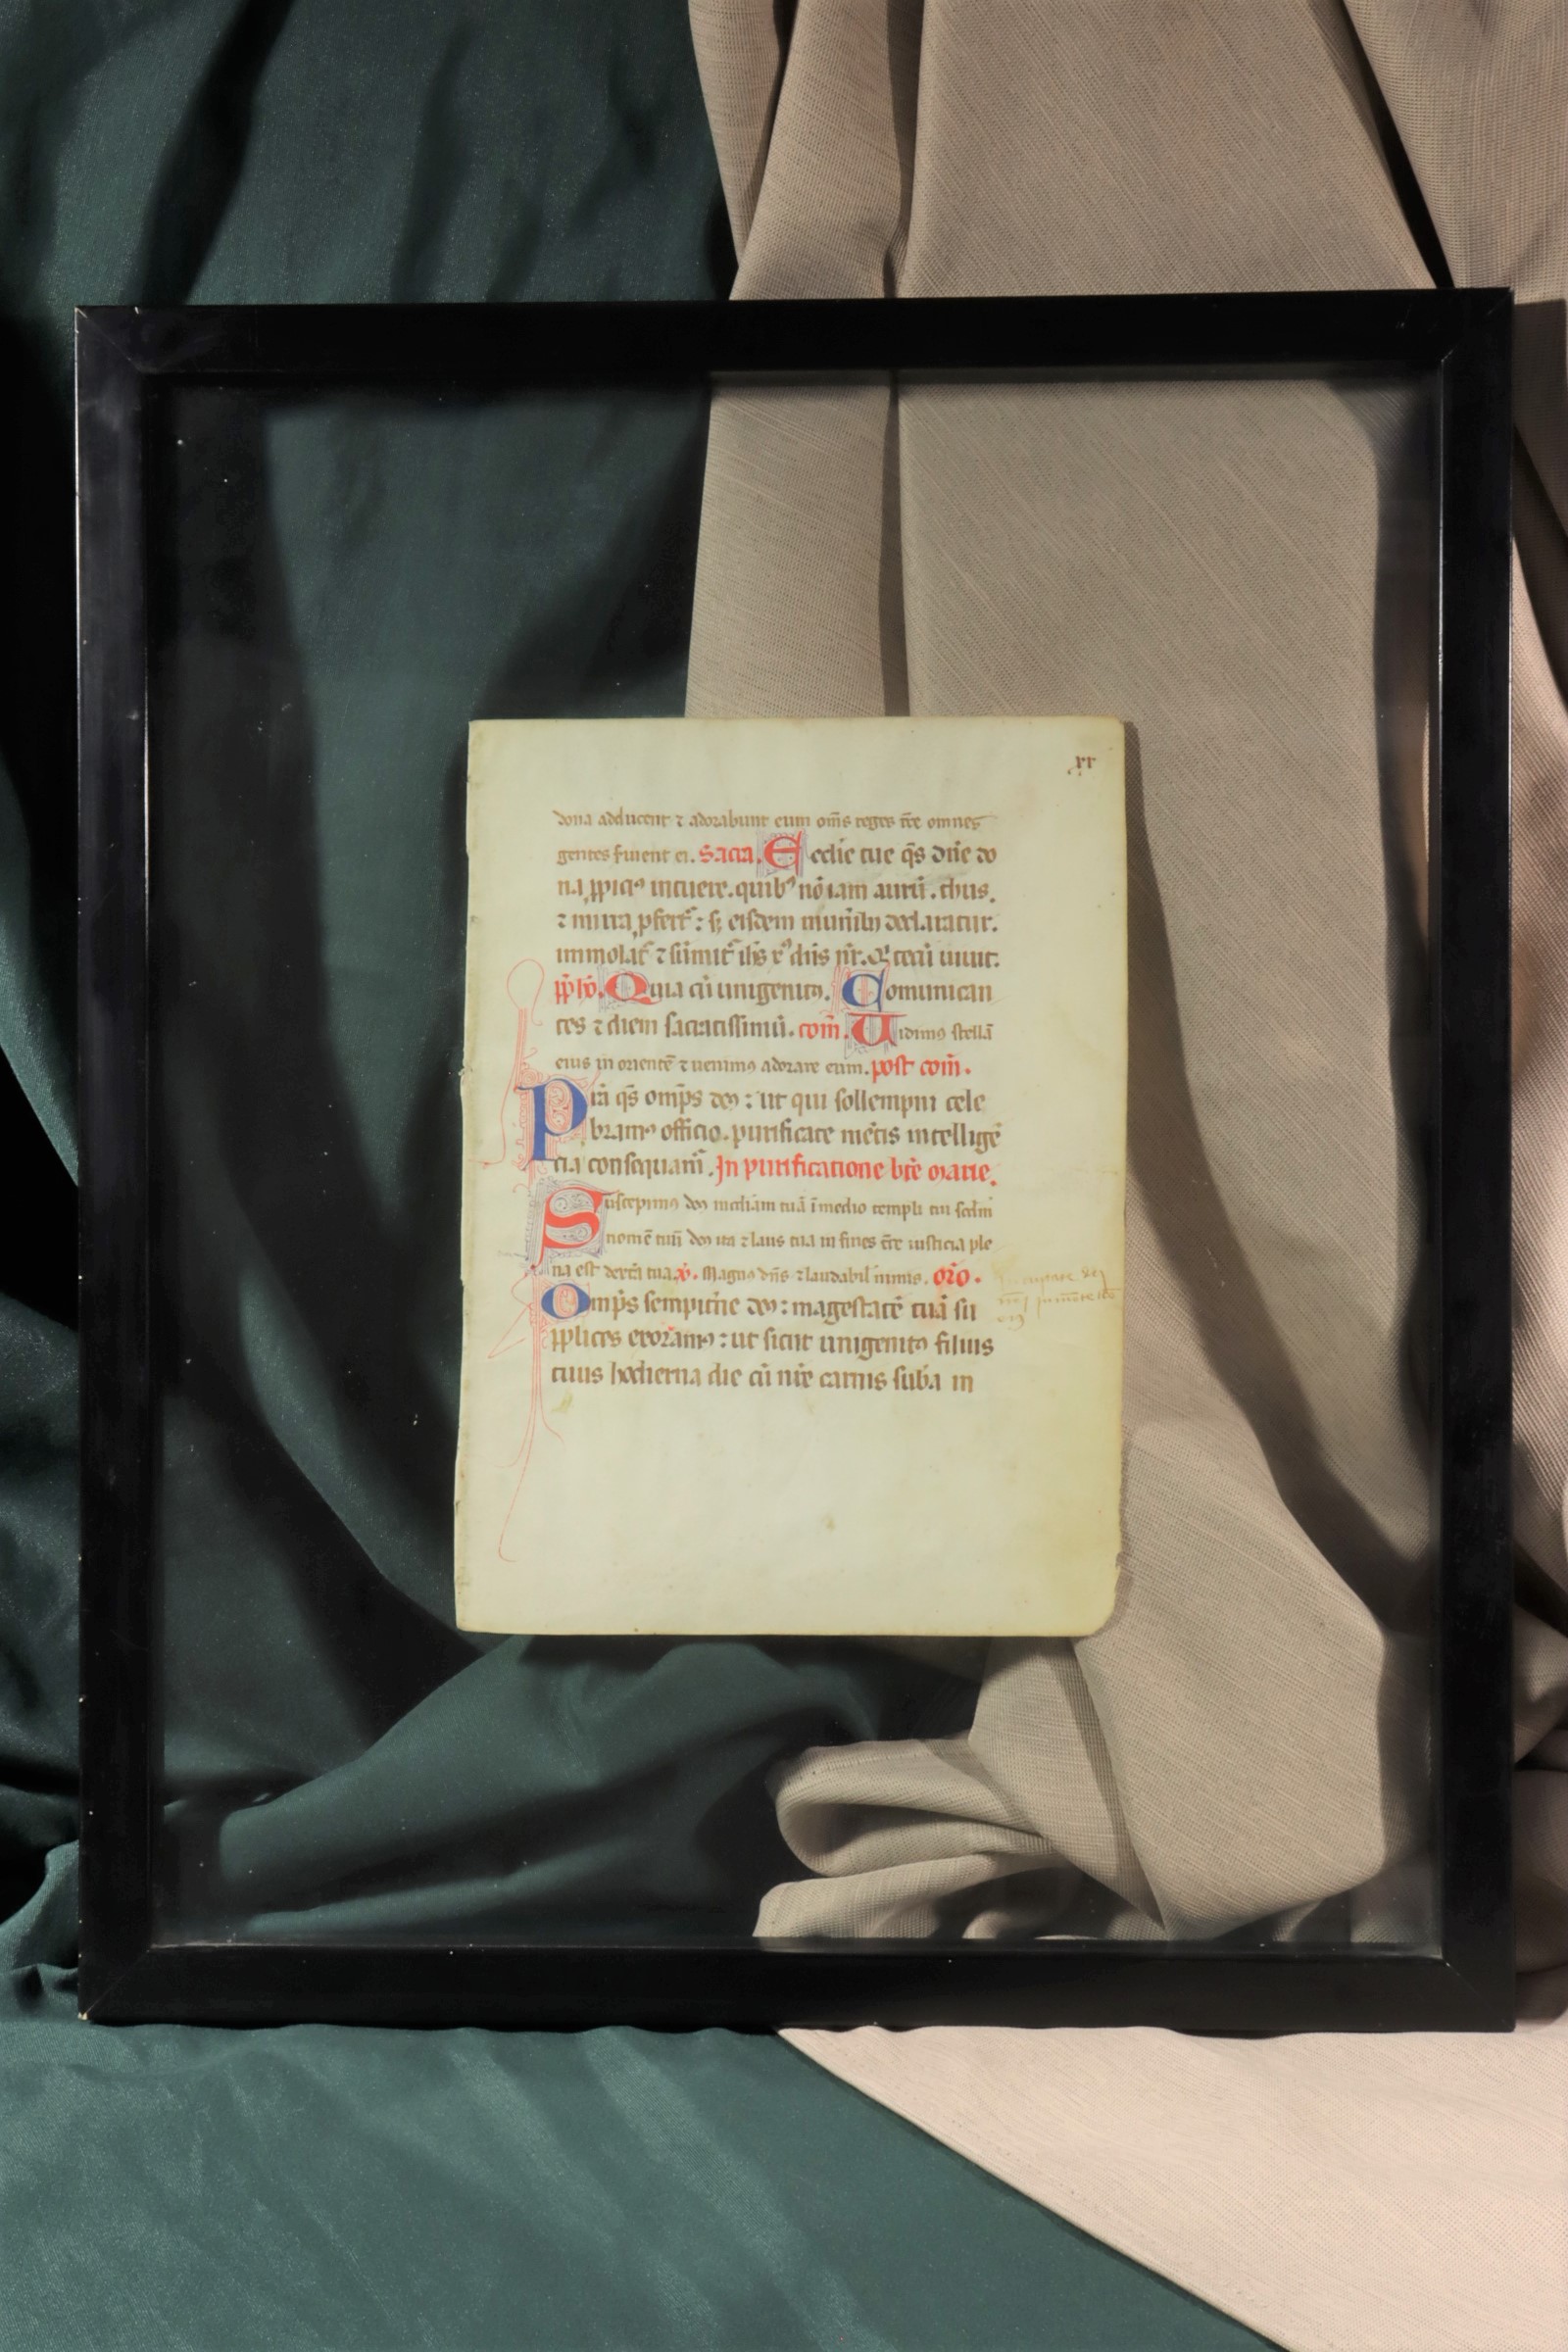 xx
dona adducent ⁊ adorabunt eum om̄s reges tr̄e omnes
gentes seruient ei. Sacra. Eccl̄ie tue q̄s dn̄e do
na ꝓpiciꝰ intuere. quibꝰ nō iam aurū. thus.
⁊ mirra ꝓfert᷑: sꝫ eisdem munib; declaratur.
immolat᷑ ⁊ sumit᷑ ih̄s xp̄c dn̄s nr̄. Qͥ tecū uiuit.
Quia cū unigenitꝰ. Comunican
tes ⁊ diem sacratissimū. com̄. Uidimꝰ stellā
eius in oriente ⁊ uenimꝰ adorare eum. post com̄.
Pr̄a q̄s omp̄s deꝰ: ut qui sollempni cele
bramꝰ officio. purificate mētis intelligē
tia consequam᷑. In purificatione btē marie.
Suscepimꝰ deꝰ mi̅am tuā ī medio templi tui scd̄m
nomē tuū deꝰ ita ⁊ laus tua in fines tr̄e iusticia ple
na est dextra tua. Magnꝰ dn̄s ⁊ laudabil̄ nimis. or̄o.
Omp̄s sempit̄ne deꝰ: magestatē tuā su
pplices exoramꝰ: ut sicut unigenitꝰ filius
tuus hodierna die cū nr̄e carnis suba in